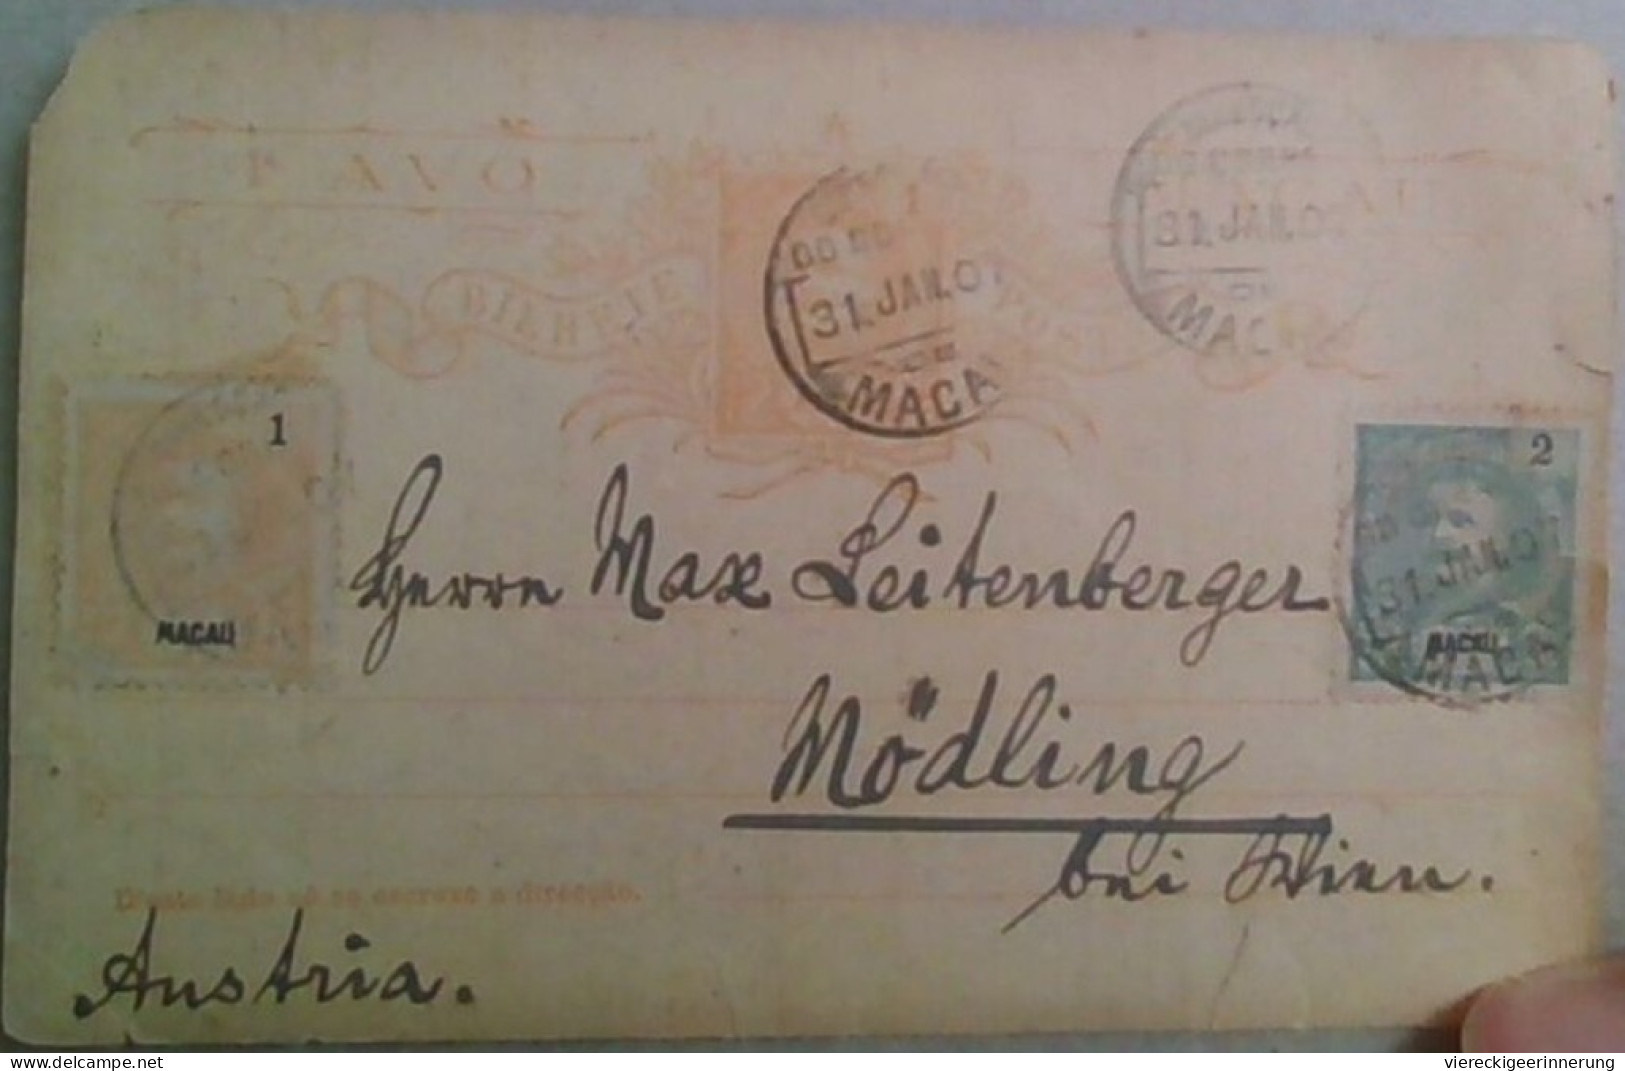 1 AVO
BILHETE POSTAL
31.JAN.07
MACAU
31.JAN.0
MAC
1
MACAU
2
31.JAN.07
MACAU
MAC
Herrn Max Leitenberger
Mödling
bei Wien.
D'este lado só se escreve a direcção.
Austria.
www.delcampe.net
viereckigeerinnerung